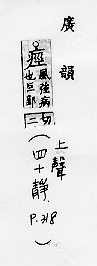 廣韻
上聲
痙風強病也巨郢切二
(四十靜 P.318)